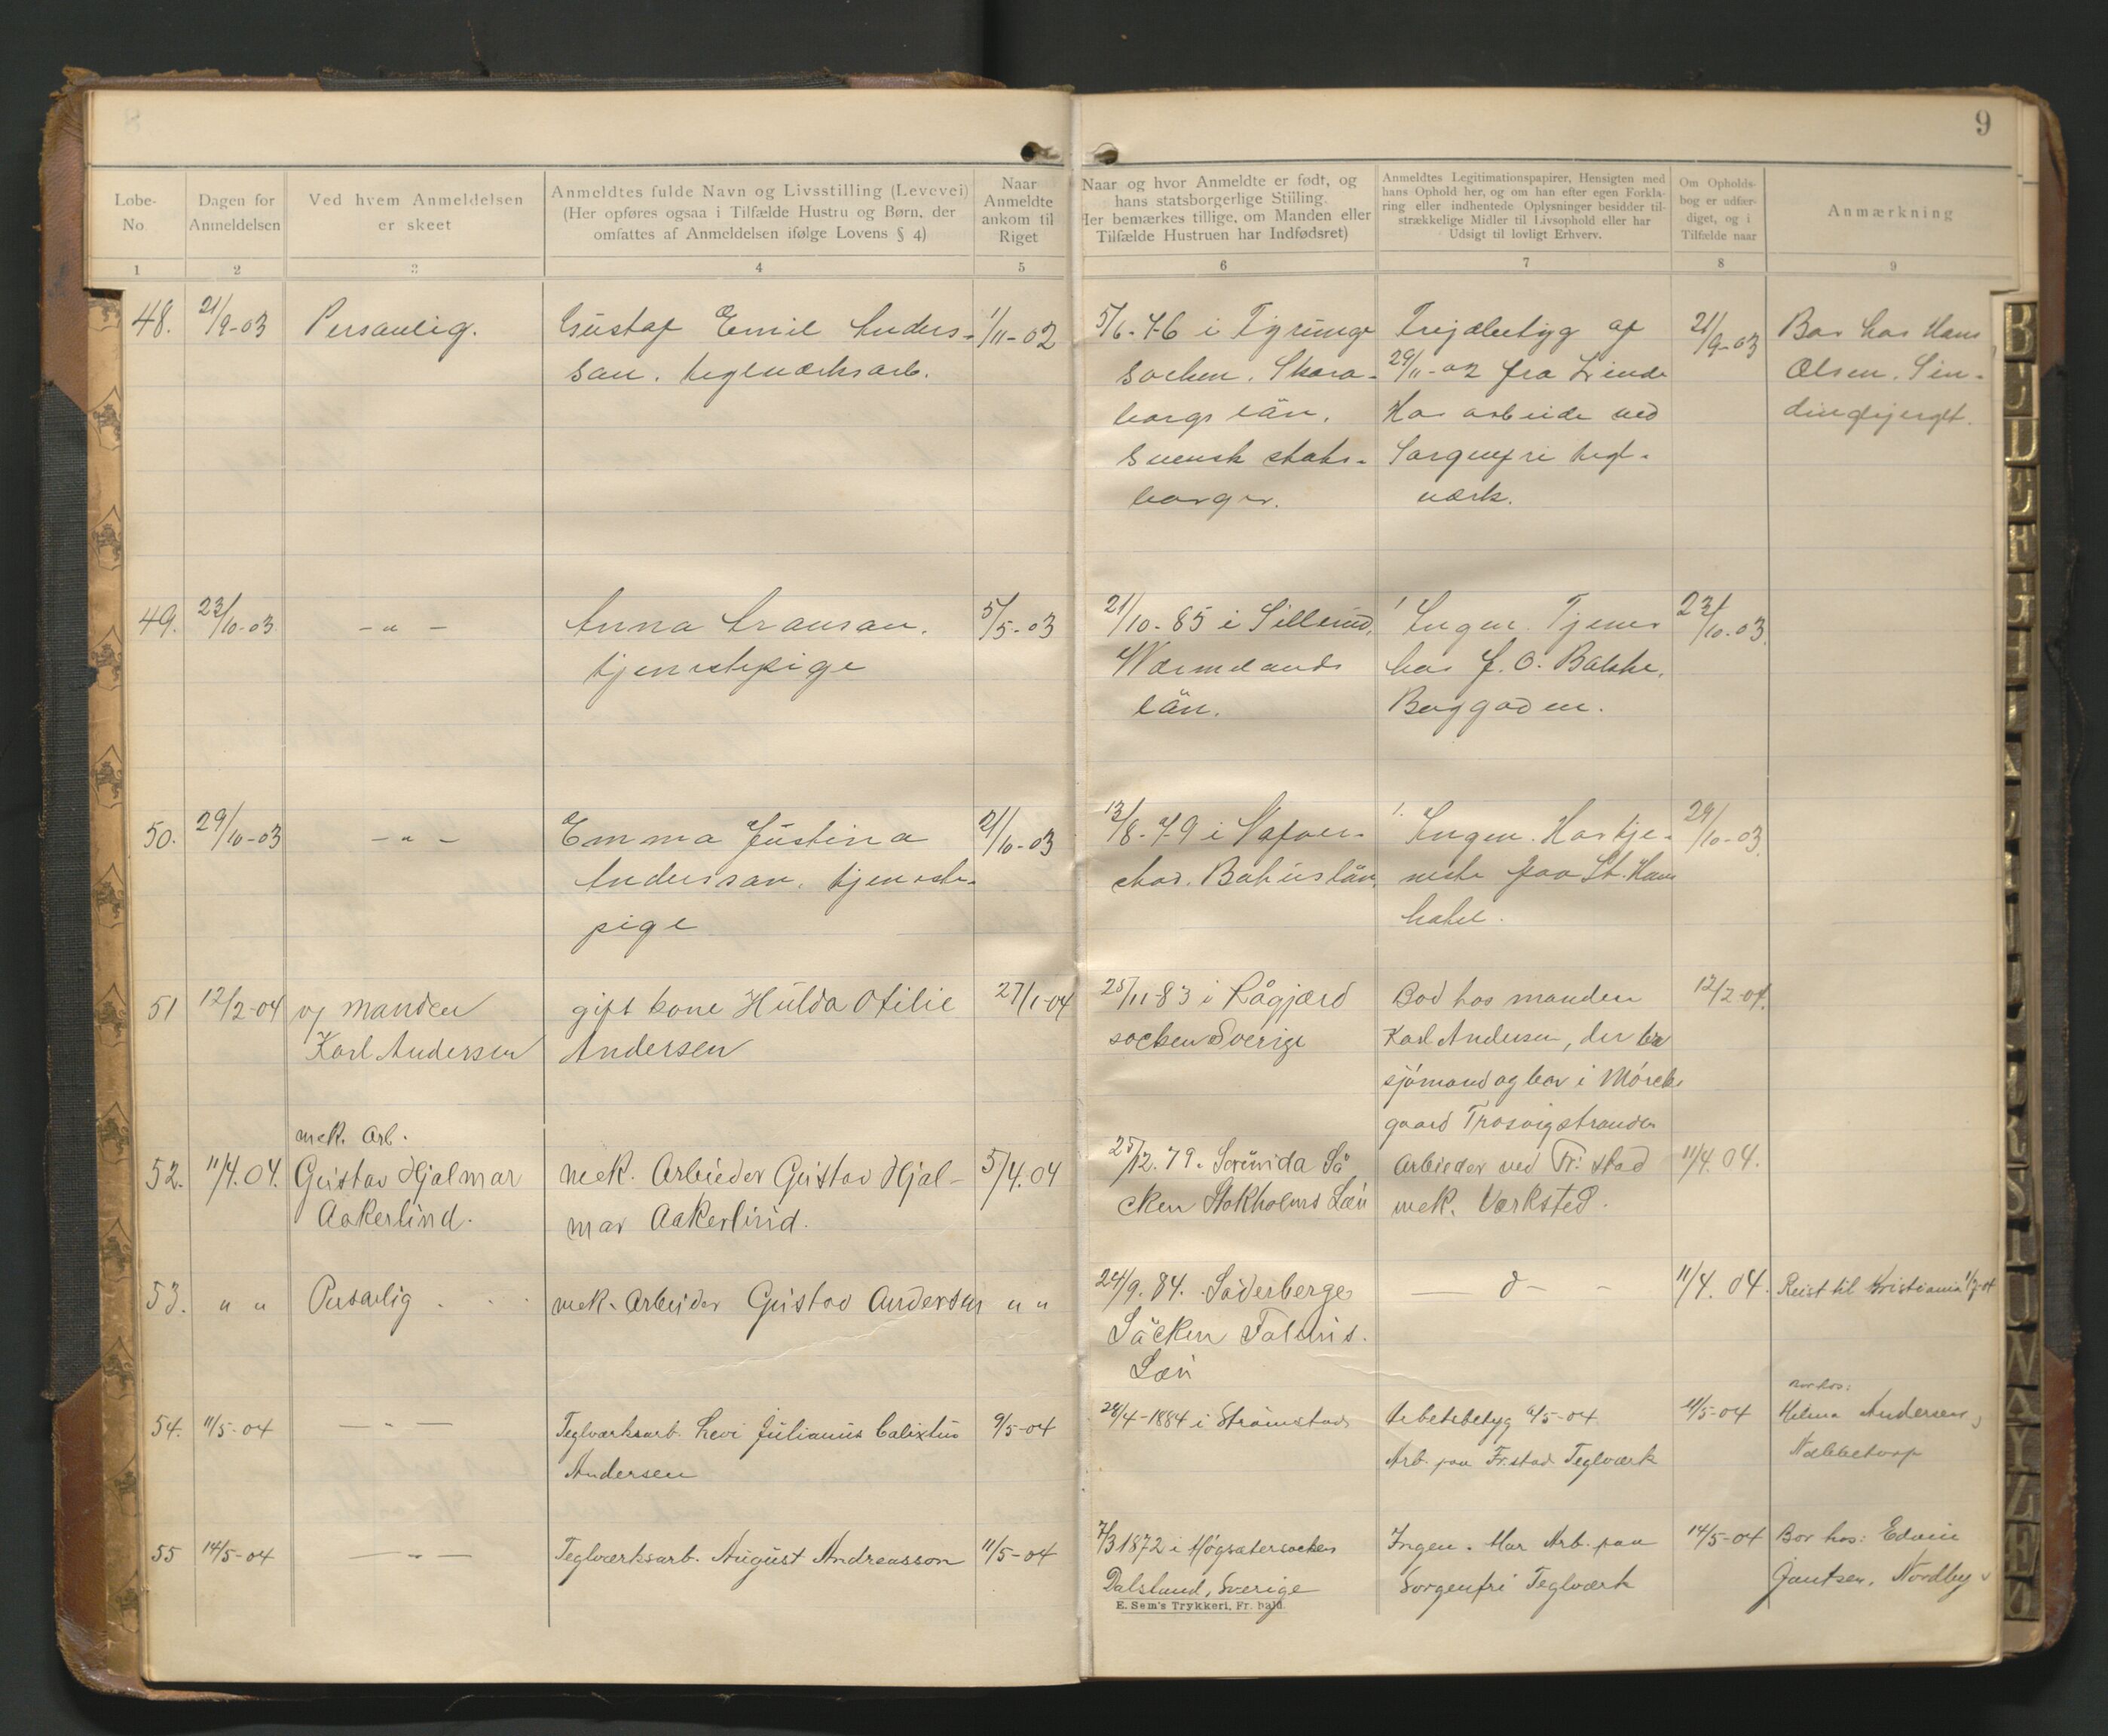 9
Løbe-
No
Dagen for
Anmeldelsen
Ved hvem Anmeldelsen
er skeet
Anmeldtes fulde Navn og Livsstilling (Levevei)
(Her opføres ogsaa i Tilfælde Hustru og Børn, der
omfattes af Anmeldelsen ifølge Lovens § 4)
Naar
Anmeldte
ankom til
Riget
Naar og hvor Anmeldte er født, og
hans statsborgerlige Stilling.
Her bemærkes tillige, om Manden eller
Tilfælde Hustruen har Indfødsret)
Anmeldtes Legitimationspapirer, Hensigten med
hans Ophold her, og om han efter egen Forkla-
ring eller indhentede Oplysninger besidder til-
strækkelige Midler til Livsophold eller har
Udsigt til lovligt Erhverv.
Om Opholds-
bog er udfær-
diget, og i
Tilfælde naar
Anmærkning
1 2 3 4 5 6 7 8 9
48.
21/9-03
Personlig.
Gustaf Emil Anders-
son. teglverksarb.
1/11-02
5/6-76 i
socken. Skara-
borgs län.
Svensk stats-
borger.
af
29/11-02 fra Linde
Har arbeide ved
Sorgenfri tegl-
værk.
21/9-03
Bor hos Hans
Olsen. Sin-
49.
23/10-03
-"-
Anna Aronson.
tjenestepige
5/5-03
21/10-85 i Sillerud,
Wermlands
län.
Ingen. Tjener
hos J. O. Bakke,
Baggaden.
23/10-03.
50.
29/10-03
-"-
Emma Justina
Anderson. tjeneste-
pige
21/10-03
13/8-79 i
Bahuslän.
Ingen. Har tje-
neste paa St. Hans
hotel.
29/10-03.
51
12/2-04
og manden
Karl Andersen
gift kone Hulda Otilie
Andersen
27/1-04
25/11-83 i Rågjærd
socken Sverige
Bod hos manden
Karl Andersen, der
sjömand og bor i
gaard Trosvigstranden
12/2-04.
52.
11/4.04.
mek. Arb.
Gustav Hjalmar
Aakerlind.
mek. Arbeider Gustav Hjal-
mar Aakerlind.
5/4.04
25/12.79. Sorunda Sä
cken Stokholms Län
Arbeider ved Fr: stad
mek. Værksted.
11/4.04.
53.
" "
Personlig
mek. Arbeider Gustav Andersen
" "
24/9.84. Söderberge
Säcken Faluns.
Län
— d — -
11/4.04.
Reist til Kristiania 1/7-04
54.
11/5-04
-"-
Teglværksarb. Levi Julianus Calixtus
Andersen
9/5-04
28/4-1884 i Strömstad
Arbetsbetyg 6/5-04
Arb. paa Fr.stad Teglværk
11/5-04
Bor hos:
Helma Andersen,
Nabbetorp
55
14/5-04
-"-
Teglværksarb. August Andreasson
11/5-04
7/3 1872 i Högsätersocken
Dalsland, Sverige
Ingen. Har Arb. paa
Sorgenfri Teglværk
14/5-04
Bor hos: Edvin
Jantsen, Nordby
E. Sem's Trykkeri, Fr. hald.